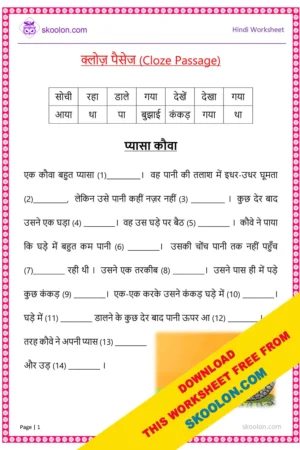 skoolon.com
Hindi Worksheet
क्लोज़ पैसेज (Cloze Passage)
सोची रहा डाले गया देखें देखा गया
आया था पा बुझाई कंकड़ गया था
प्यासा कौवा
एक कौवा बहुत प्यासा (1)________ । वह पानी की तलाश में इधर-उधर घूमता
(2)________, लेकिन उसे पानी कहीं नज़र नहीं (3) ________ । कुछ देर बाद
उसने एक घड़ा (4) ________ । वह उस घड़े पर बैठ (5) ________ । कौवे ने पाया
कि घड़े में बहुत कम पानी (6) ________। उसकी चोंच पानी तक नहीं पहुँच
(7)________ रही थी । उसने एक तरकीब (8) ________। उसने पास ही में पड़े
कुछ कंकड़ (9) ________। एक-एक करके उसने कंकड़ घड़े में (10) ________।
घड़े में (11) ________ डालने के कुछ देर बाद पानी ऊपर आ (12) ________।
तरह कौवे ने अपनी प्यास (13) ________
और उड़ (14) ________ ।
DOWNLOAD
THIS WORKSHEET FREE FROM
SKOOLON.COM
Page | 1
skoolon.com